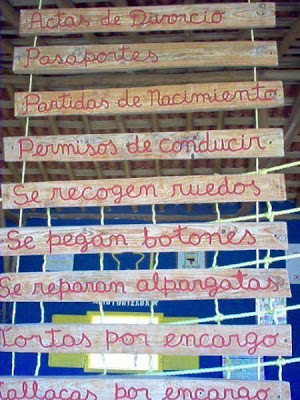 Actas de Divorcio
Pasaportes
Partidas de Nacimiento
Permisos de conducir
Se recogen ruedos
Se pegan botones
Se reparan alpargatas
Tortas por encargo
Hallacas por encargo